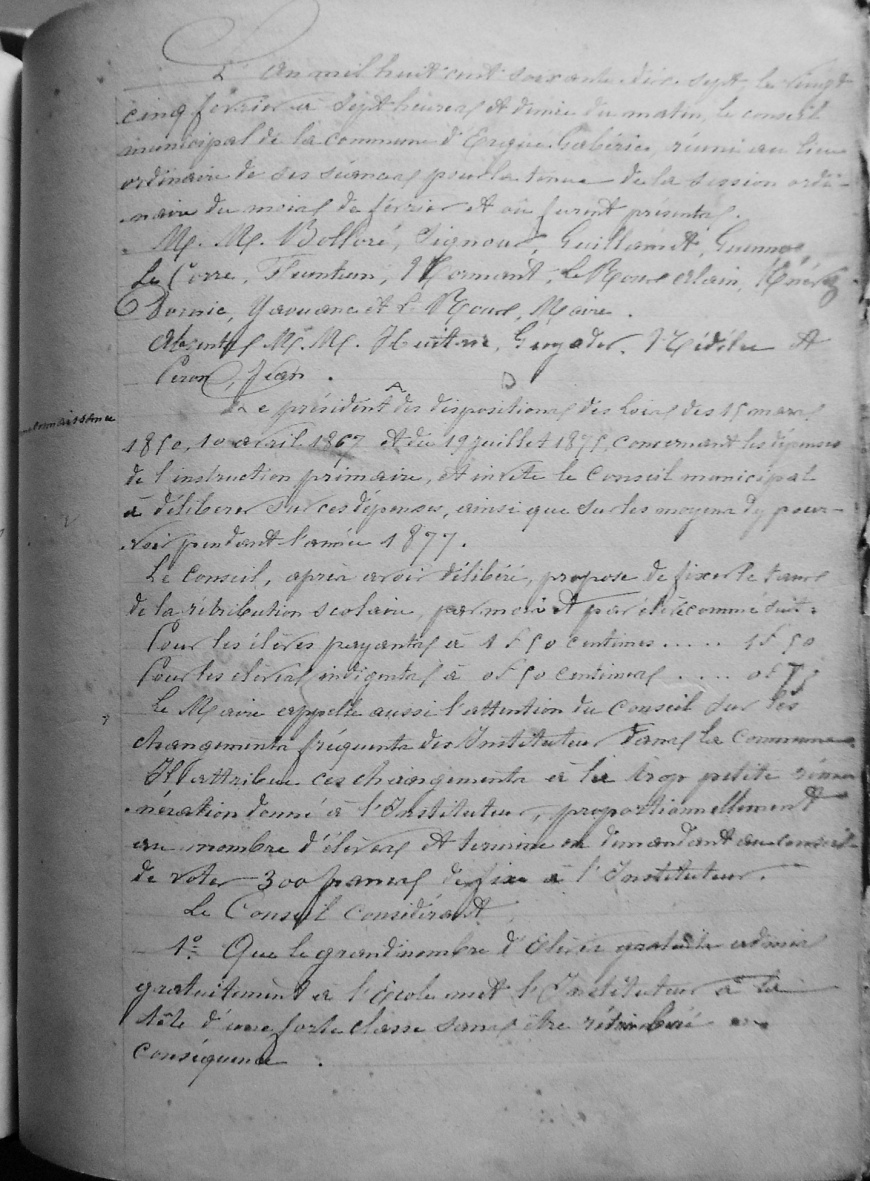 L'an mil huit cent soixante dix sept, le vingt
cinq février à sept heures et demie du matin, le conseil
municipal de la commune d'Ergué-Gabéric, réuni au lieu
ordinaire de ses séances pour la tenue de la session ordi-
naire du mois de février et où furent présents.
M. M. Bolloré, Signour, Guillamet,
Le Corre, Huntum, Normant, Le Roux Alain,
Yaouanc et Le Roux, Maire.
Absents M. M. Guyader, et
Jean.
connaissance
Le président des dispositions des lois des 15 mars
1850, 10 avril 1867 et du 19 juillet 1875, concernant les dépenses
de l'instruction primaire, et invite le Conseil municipal
à délibérer sur ces dépenses, ainsi que sur les moyens d'y pour-
voir pendant l'année 1877.
Le Conseil, après avoir délibéré, propose de fixer le taux
de la rétribution scolaire, par mois et par élève comme suit:
Pour les élèves payants à 1f50 centimes ..... 1f50
Pour les élèves indigents à 0f50 centimes .... 0f75
Le Maire appelle aussi l'attention du Conseil sur les
changements fréquents des Instituteur dans la Commune.
Il attribue ces changements à la trop petite rému
nération donné à l'Instituteur, proportionnellement
au nombre d'élèves et termine en demandant au conseil
de voter 300 francs de fixe à l'Instituteur.
Le Conseil considérant
1º. Que le grand nombre d'Elèves gratuits admis
gratuitement à l'école met l'Instituteur à la
tête d'une forte classe sans être rétribué en
conséquence.